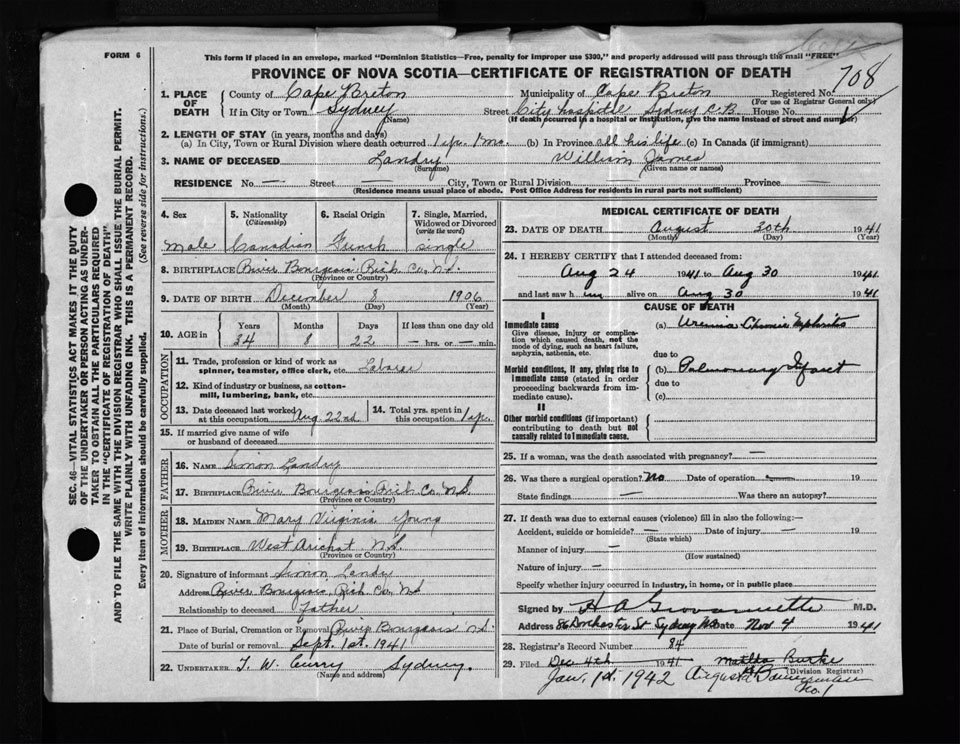 FORM 6
This form if placed in an envelope, marked "Dominion Statistics—Free, penalty for improper use $300," and properly addressed will pass through the mail "FREE"
PROVINCE OF NOVA SCOTIA—CERTIFICATE OF REGISTRATION OF DEATH
708
1. PLACE OF DEATH County of Cape Breton Municipality of Cape Breton Registered No.
(For use of Registrar General only)
If in City or Town Sydney Street City Hospital Sydney C.B. House No. 1
(Name) (If death occurred in a hospital or institution, give the name instead of street and number)
2. LENGTH OF STAY (in years, months and days)
(a) In City, Town or Rural Division where death occurred 1 yr. 1 mo. (b) In Province all his life (c) In Canada (if immigrant)
3. NAME OF DECEASED Landry William James
(Surname) (Given name or names)
RESIDENCE No. — Street — City, Town or Rural Division Province —
(Residence means usual place of abode. Post Office Address for residents in rural parts not sufficient)
SEC. 46—VITAL STATISTICS ACT MAKES IT THE DUTY
OF THE UNDERTAKER OR PERSON ACTING AS UNDER-
TAKER TO OBTAIN ALL THE PARTICULARS REQUIRED
IN THE "CERTIFICATE OF REGISTRATION OF DEATH"
AND TO FILE THE SAME WITH THE DIVISION REGISTRAR WHO SHALL ISSUE THE BURIAL PERMIT.
WRITE PLAINLY WITH UNFADING INK. THIS IS A PERMANENT RECORD.
Every item of information should be carefully supplied. (See reverse side for instructions.)
4. Sex Male
5. Nationality (Citizenship) Canadian
6. Racial Origin French
7. Single, Married, Widowed or Divorced (write the word) single
8. BIRTHPLACE River Bourgeois Rich Co. N.S.
(Province or Country)
9. DATE OF BIRTH December 8 1906
(Month) (Day) (Year)
10. AGE in Years 34 Months 8 Days 22 If less than one day old — hrs. or — min.
OCCUPATION
11. Trade, profession or kind of work as spinner, teamster, office clerk, etc. Laborer
12. Kind of industry or business, as cotton-mill, lumbering, bank, etc.
13. Date deceased last worked at this occupation Aug 22nd
14. Total yrs. spent in this occupation 1 yr.
15. If married give name of wife or husband of deceased
FATHER
16. NAME Simon Landry
17. BIRTHPLACE River Bourgeois Rich Co. N.S.
(Province or Country)
MOTHER
18. MAIDEN NAME Mary Virginia Young
19. BIRTHPLACE West Arichat N.S.
(Province or Country)
20. Signature of informant Simon Landry
Address River Bourgeois, Rich Co. N.S.
Relationship to deceased Father
21. Place of Burial, Cremation or Removal River Bourgeois N.S.
Date of burial or removal Sept. 1st. 1941
22. UNDERTAKER T. W. Curry Sydney.
(Name and address)
MEDICAL CERTIFICATE OF DEATH
23. DATE OF DEATH August 30th 1941
(Month) (Day) (Year)
24. I HEREBY CERTIFY that I attended deceased from:
Aug 24 1941 to Aug 30 1941
and last saw him alive on Aug 30 1941
CAUSE OF DEATH
I
Immediate cause
Give disease, injury or complication which caused death, not the mode of dying, such as heart failure, asphyxia, asthenia, etc.
(a) Uremia Chronic Nephritis
due to
Morbid conditions, if any, giving rise to immediate cause (stated in order proceeding backwards from immediate cause).
(b) Pulmonary Infarct
due to
(c)
II
Other morbid conditions (if important) contributing to death but not causally related to immediate cause.
25. If a woman, was the death associated with pregnancy? —
26. Was there a surgical operation? No Date of operation 19
State findings — Was there an autopsy?
27. If death was due to external causes (violence) fill in also the following:—
Accident, suicide or homicide? — Date of injury — 19
(State which)
Manner of injury —
(How sustained)
Nature of injury —
Specify whether injury occurred in industry, in home, or in public place
Signed by H A Giovannetti M.D.
Address 86 Dorchester St Sydney NS Date Nov 4 1941
28. Registrar's Record Number 84
29. Filed Dec 4th 1941 Martha Burke
(Division Registrar)
Jan. 1st. 1942
No. 1